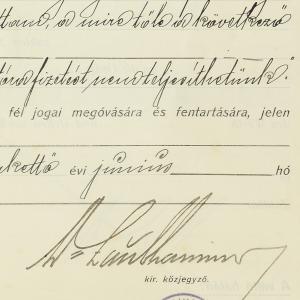 ttam, a mire tőle a következő
fizetést nem teljesíthetünk."
fél jogai megóvására és fentartására, jelen
kettő évi junius hó
Dr
kir. közjegyző.